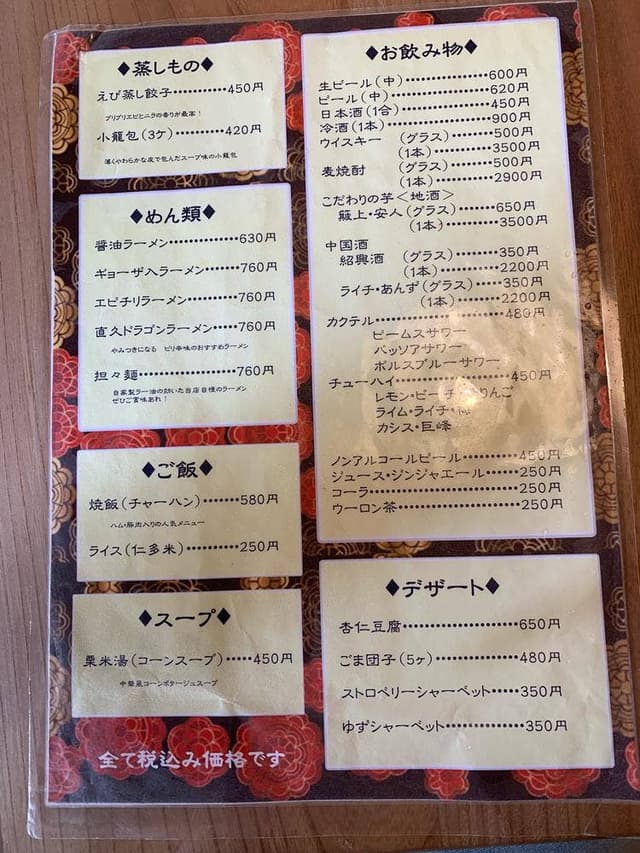 ◆蒸しもの◆
えび蒸し餃子…………450円
プリプリエビとニラの香りが最高!
小籠包(3ケ)…………420円
薄くやわらかな皮で包んだスープ味の小籠包
◆めん類◆
醤油ラーメン……………630円
ギョーザ入ラーメン……760円
エビチリラーメン………760円
直久ドラゴンラーメン…760円
やみつきになる ピリ辛味のおすすめラーメン
担々麺……………………760円
自家製ラー油の効いた当店自慢のラーメン
ぜひご賞味あれ!
◆ご飯◆
焼飯(チャーハン)……580円
ハム・豚肉入りの人気メニュー
ライス(仁多米)………250円
◆スープ◆
粟米湯(コーンスープ)……450円
中華風コーンポタージュスープ
全て税込み価格です
◆お飲み物◆
生ビール(中)……………600円
ビール(中)………………620円
日本酒(1合)……………450円
冷酒(1本)………………900円
ウイスキー (グラス)……500円
(1本)………3500円
麦焼酎 (グラス)……500円
(1本)………2900円
こだわりの芋<地酒>
・安人(グラス)……650円
(1本)………3500円
中国酒
紹興酒 (グラス)……350円
(1本)………2200円
ライチ・あんず(グラス)……350円
(1本)………2200円
カクテル……………………480円
ビームスサワー
パッソアサワー
ボルスブルーサワー
チューハイ…………………450円
レモン・ピーチ・りんご
ライム・ライチ・
カシス・巨峰
ノンアルコールビール……450円
ジュース・ジンジャエール……250円
コーラ………………………250円
ウーロン茶…………………250円
◆デザート◆
杏仁豆腐……………………650円
ごま団子(5ヶ)…………480円
ストロベリーシャーベット……350円
ゆずシャーベット…………350円